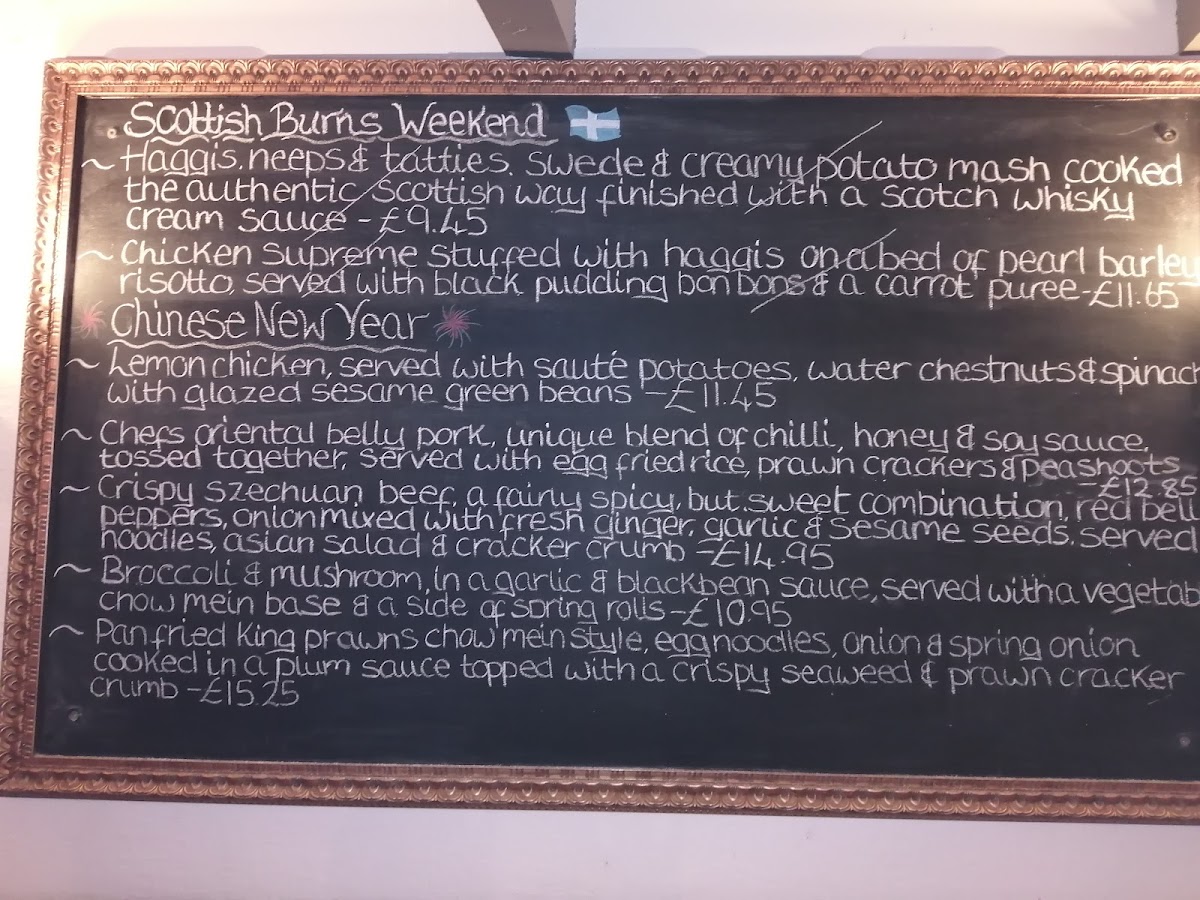 Scottish Burns Weekend
~ Haggis, neeps & tatties. Swede & creamy potato mash cooked
the authentic Scottish way finished with a scotch whisky
cream sauce - £9.45
~ Chicken Supreme stuffed with haggis on a bed of pearl barley
risotto, served with black pudding bon bons & a carrot puree - £11.65
Chinese New Year
~ Lemon chicken, served with sauté potatoes, water chestnuts & spinach
with glazed sesame green beans - £11.45
~ Chefs oriental belly pork, unique blend of chilli, honey & soy sauce,
tossed together, served with egg fried rice, prawn crackers & peashoots
- £12.85
~ Crispy Szechuan beef, a fairly spicy, but sweet combination, red bell
peppers, onion mixed with fresh ginger, garlic & sesame seeds. Served
noodles, asian salad & cracker crumb - £14.95
~ Broccoli & mushroom, in a garlic & blackbean sauce, served with a vegetab
chow mein base & a side of spring rolls - £10.95
~ Pan fried King prawns chow mein style, egg noodles, onion & spring onion
cooked in a plum sauce topped with a crispy seaweed & prawn cracker
crumb - £15.25